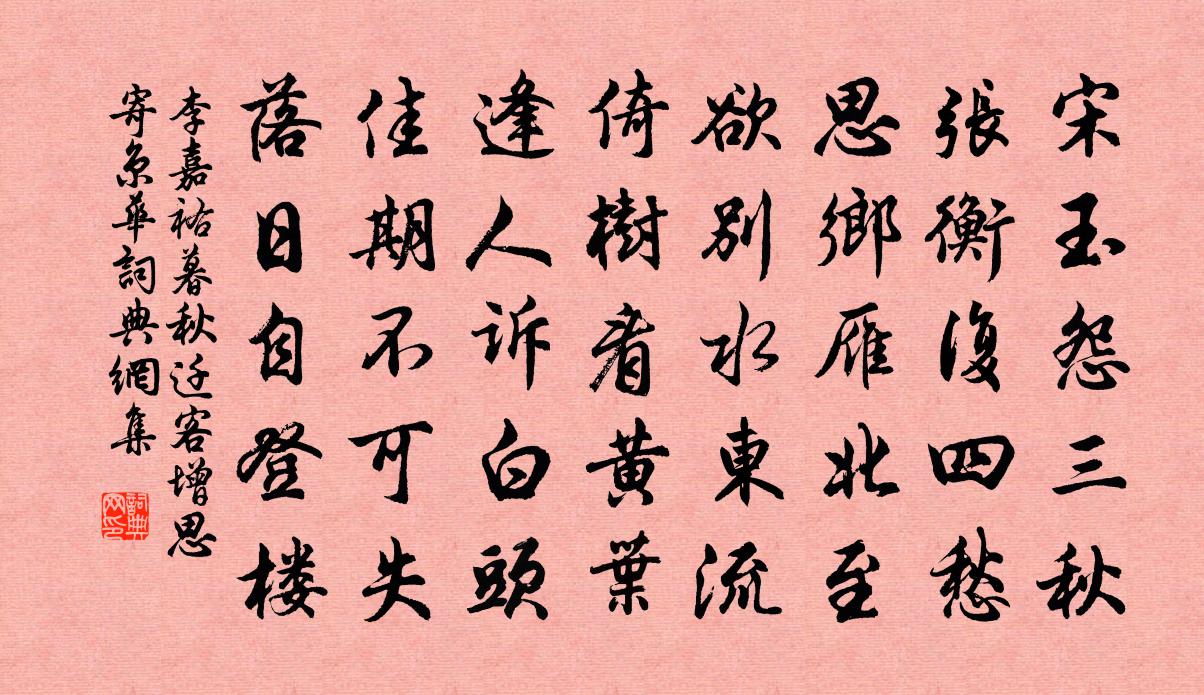 宋玉怨三秋
張衡復四愁
思鄉雁北至
欲別水東流
倚樹看黃葉
逢人诉白頭
佳期不可失
落日自登楼
李嘉祐暮秋迁客增思
寄京華詞典網集
詞典
网印